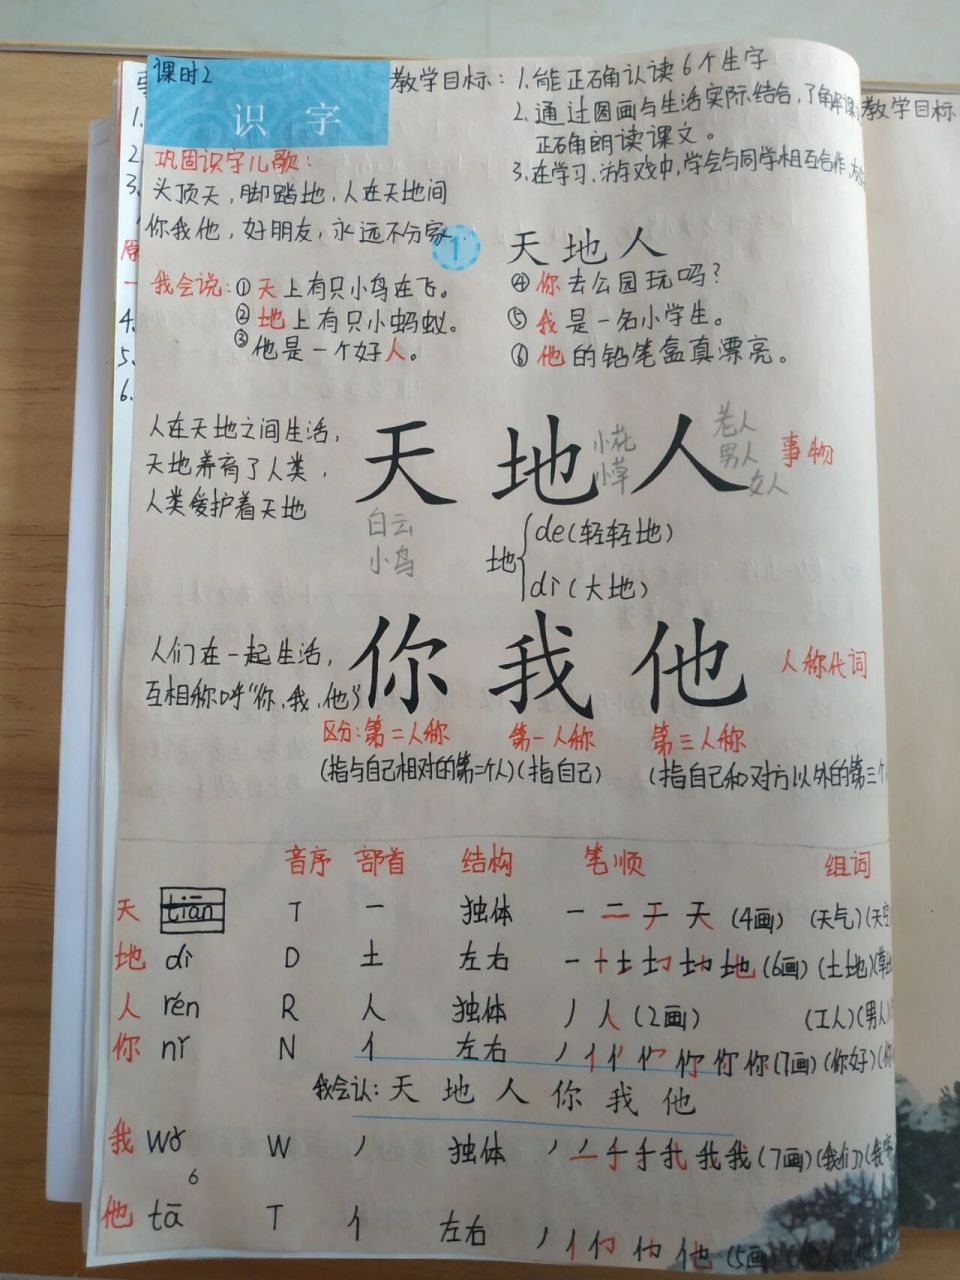 课时2
识字
教学目标：1.能正确认读6个生字
2.通过图画与生活实际结合，了解课
正确朗读课文。
3.在学习、游戏中，学会与同学相互合作，
教学目标
巩固识字儿歌：
头顶天，脚踏地，人在天地间
你我他，好朋友，永远不分家
1 天地人
我会说：①天上有只小鸟在飞。
②地上有只小蚂蚁。
③他是一个好人。
④你去公园玩吗？
⑤我是一名小学生。
⑥他的铅笔盒真漂亮。
1.
2
3.
4.
5.
6.
人在天地之间生活，
天地养育了人类，
人类爱护着天地
天地人
白云
小鸟
小花
小草
老人
男人
女人
事物
地 de(轻轻地)
dì(大地)
人们在一起生活，
互相称呼"你、我、他"
你我他
人称代词
区分：第二人称 第一人称 第三人称
(指与自己相对的第二个人)(指自己) (指自己和对方以外的第三个
音序 部首 结构 笔顺 组词
天 tiān T 一 独体 一 二 于 天 (4画) (天气)(天空
地 dì D 土 左右 一 十 土 地 (6画) (土地)(草地
人 rén R 人 独体 丿 人 (2画) (工人)(男人)
你 nǐ N 亻 左右 丿 亻 你 (7画) (你好)(你
我会认：天 地 人 你 我 他
我 wǒ W 丿 独体 丿 二 手 手 我 我 (7画) (我们)(我
6
他 tā T 亻 左右 丿 亻 他 (5画)